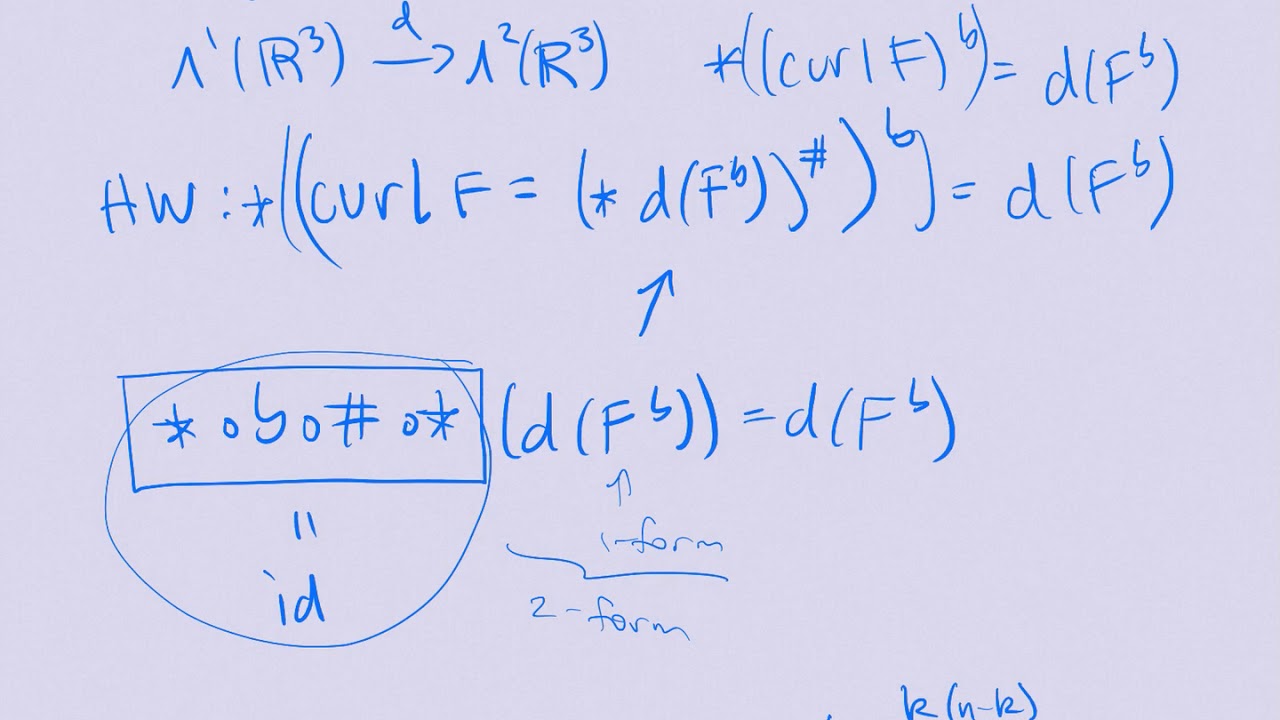 Λ¹(ℝ³) —d→ Λ²(ℝ³)  *((curl F)^♭) = d(F^♭)
HW: *[((curl F = (* d(F^♭))^#)^♭] = d(F^♭)
↑
* ∘ ♭ ∘ # ∘ * (d(F^♭)) = d(F^♭)
↑
=
1-form
id
2-form
k(n-k)